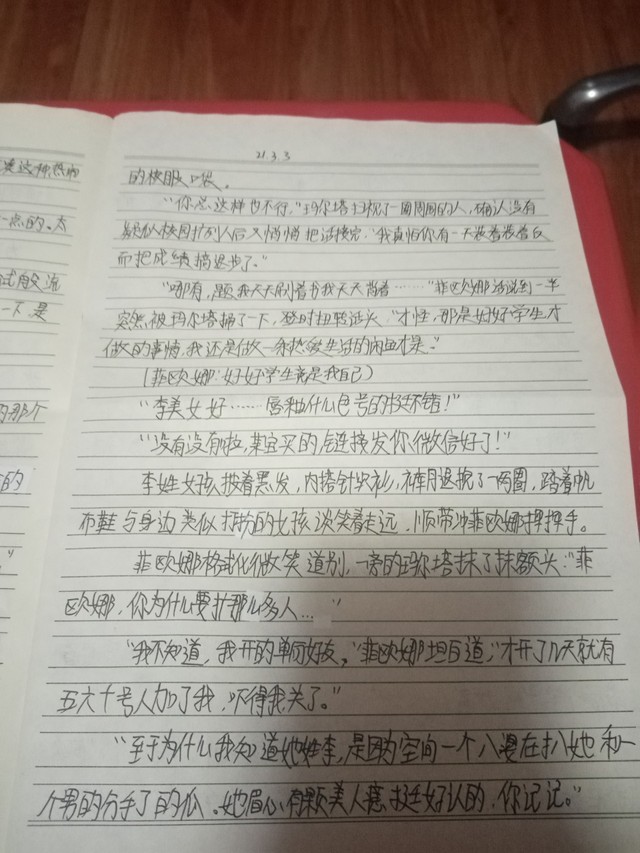 21.3.3
的校服口袋。
"你总这样也不行,"玛尔塔扫视了一圈周围的人,确认没有
疑似校园打列人后又悄悄把话接完,"我真怕你有一天装着装着反
而把成绩搞退步了。"
"哪有,题我天天刷着书我天天背着……"菲欧娜话说到一半
突然被玛尔塔捅了下,登时扭转话头,"才怪,那是好好学生才
做的事情,我还是做一条热爱生活的
(菲欧娜:好好学生竟是我自己)
"李美女好……唇釉什么色号的挺不错!"
"没有没有啦,某宝买的,链接发你微信好了!"
李姓女孩披着黑发,内搭针织衫,裤腿挽了两圈,踏着帆
布鞋与身边类似打扮的女孩谈笑着走远,顺带冲菲欧娜挥挥手。
菲欧娜格式化微笑道别,一旁的玛尔塔抹了抹额头:"菲
欧娜,你为什么要扩那么多人…"
"我不知道,我开的单向好友,"菲欧娜坦白道,"才开了几天就有
五六十号人加了我,吓得我关了。"
"至于为什么我知道她姓李,是因为空间一个八婆在扒她和一
个男的分手了的瓜。她眉心有颗美人痣挺好认的,你记记。"
果这种热
一点的。太
试
一下是
的那个
的